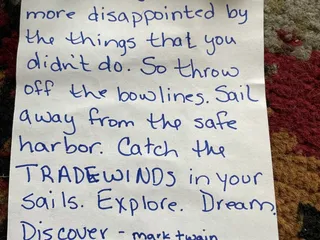 more disappointed by
the things that you
didn't do. So throw
off the bowlines. Sail
away from the safe
harbor. Catch the
TRADEWINDS in your
sails. Explore. Dream.
Discover - mark twain